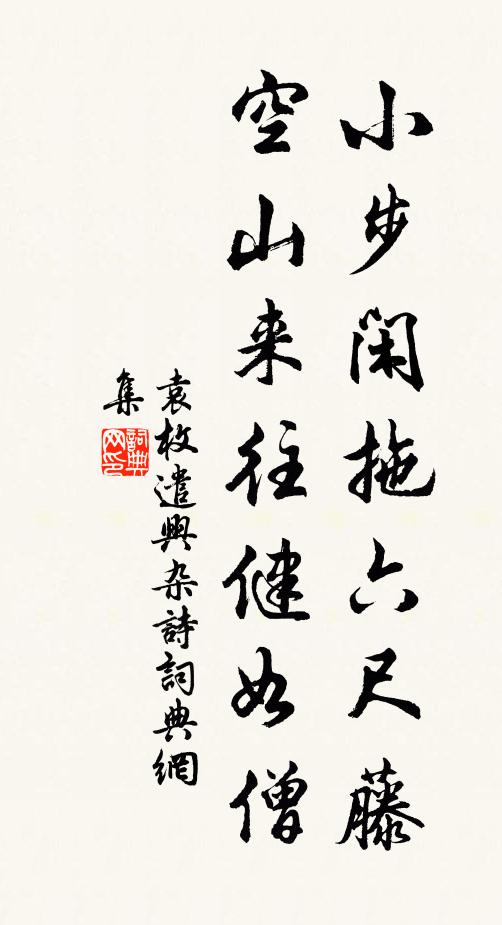 小步闲拖六尺藤
空山来往健如僧
袁枚遣興杂詩詞典網
集
詞典网印